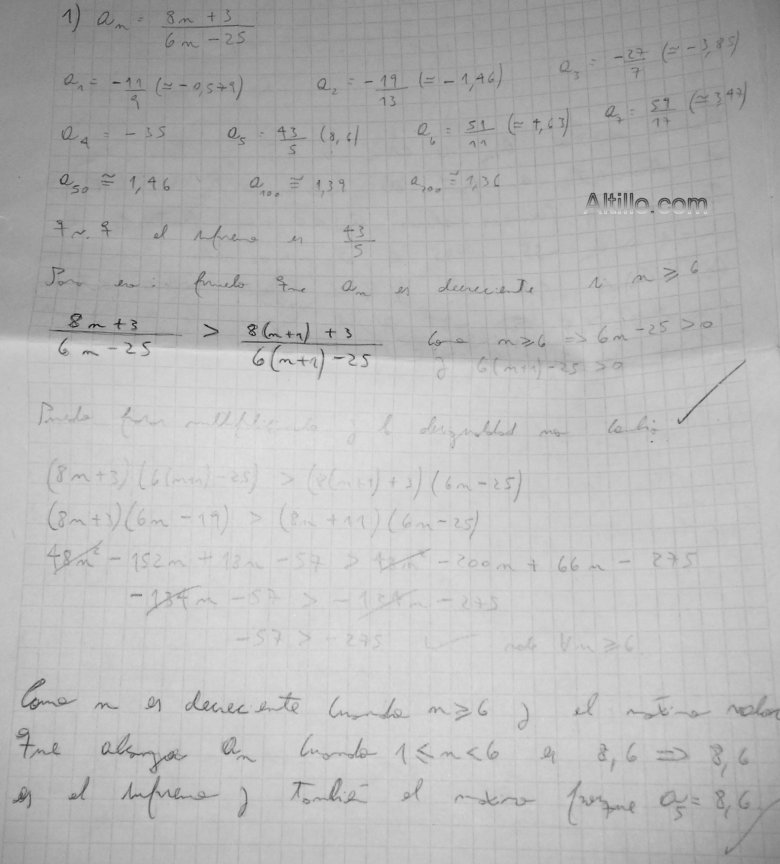 1) a_n = (8n + 3)/(6n - 25)
a_1 = -11/9 (≈ -0,579) a_2 = -19/13 (≈ -1,46) a_3 = -27/7 (≈ -3,85)
a_4 = -35 a_5 = 43/5 (8,6) a_6 = 51/11 (≈ 4,63) a_7 = 59/17 (≈ 3,47)
a_50 ≅ 1,46 a_100 ≅ 1,39 a_200 ≅ 1,36
Altillo.com
el supremo es 43/5
Para eso: pruebo que a_n es decreciente si n ≥ 6
(8n + 3)/(6n - 25) > (8(n+1) + 3)/(6(n+1) - 25) Como n ≥ 6 => 6n - 25 > 0
y 6(n+1) - 25 > 0
Puedo pasar multiplicando y la desigualdad no cambia
(8n+3)(6(n+1) - 25) > (8(n+1) + 3)(6n - 25)
(8n+3)(6n - 19) > (8n + 11)(6n - 25)
48n² - 152n + 18n - 57 > 48n² - 200n + 66n - 275
-134n - 57 > -134n - 275
-57 > -275 ✓ vale ∀n ≥ 6
Como n es decreciente cuando n ≥ 6 y el máximo valor
que alcanza a_n cuando 1 ≤ n < 6 es 8,6 => 8,6
es el supremo y también el máximo porque a_5 = 8,6